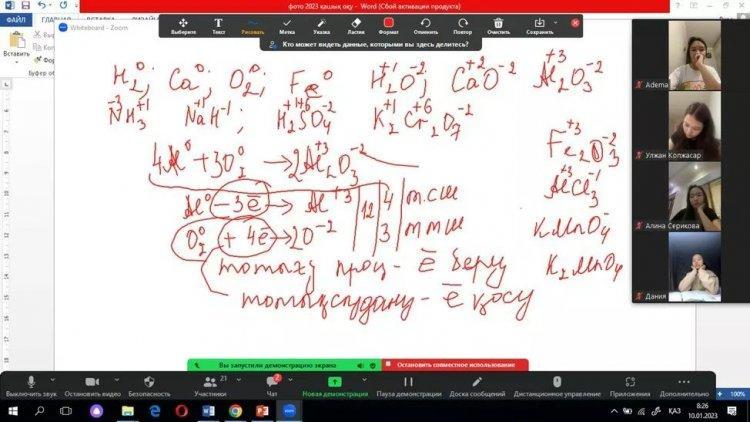 фото 2023 қашық оқу - Word (Сбой активации продукта)
Whiteboard - Zoom
Вставить
Буфер об
Выберите Текст Рисовать Метка Ластик Формат Отмена Повтор Очистить Сохранить
Кто может видеть данные, которыми вы здесь делитесь?
H₂⁰; Ca⁰; O₂⁰; Fe⁰ H₂⁺¹O⁻²; Ca⁺²O⁻² Al₂⁺³O₃⁻²
N⁻³H₃⁺¹ Na⁺¹H⁻¹; H₂⁺¹S⁺⁶O₄⁻² K₂⁺¹Cr₂⁺⁶O₇⁻²
Fe₂⁺³O₃⁻²
4Al⁰ + 3O₂⁰ → 2Al₂⁺³O₃⁻²
Al⁺³Cl₃⁻¹
Al⁰ - 3ē → Al⁺³ | 12 | 4 | т.сш
O₂⁰ + 4ē → 2O⁻² 3 т тш
KMnO₄
тотығу проц - ē беру
K₂MnO₄
тотықсыздану - ē қосу
Adema
Улжан Копжасар
Алина Серикова
Дания
Вы запустили демонстрацию экрана
Остановить совместное использование
Выключить звук Остановить видео Безопасность Участники 21 Чат 2 Новая демонстрация Пауза демонстрации Доска сообщений Дистанционное управление Приложения Дополнительно
100%
ҚАЗ
8:26
10.01.2023